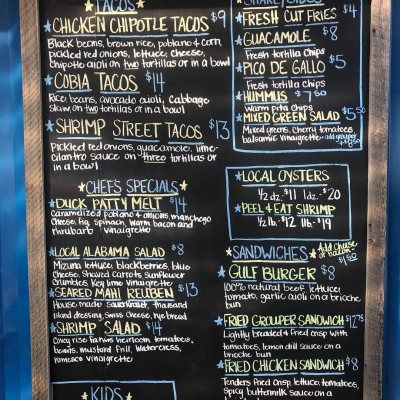 TACOS
CHICKEN CHIPOTLE TACOS $9
Black beans, brown rice, poblano & corn,
pickled red onions, lettuce, cheese,
chipotle aioli on two tortillas or in a bowl
COBIA TACOS $14
Rice, beans, avocado aioli, Cabbage
Slaw on two tortillas or in a bowl
SHRIMP STREET TACOS $13
Pickled red onions, guacamole, lime-
cilantro sauce on three tortillas or
in a bowl
CHEF'S SPECIALS
DUCK PATTY MELT $14
Caramelized poblano & onions, manchego
Cheese, fig, spinach, warm bacon and
rhrubarb vinaigrette
LOCAL ALABAMA SALAD $8
Mizuna lettuce, blackberries, blue
Cheese, Shaved Carrots Sunflower
Crumbles Key lime Vinaigrette
SEARED MAHI REUBEN $13
House made sauerkraut, thousand
Island dressing, Swiss Cheese, rye bread
SHRIMP SALAD $14
Covey rise Farms heirloom tomatoes,
beans, mustard frill, watercress,
romesco vinaigrette
KIDS
SHARE/SIDES
FRESH CUT FRIES $4
GUACAMOLE $8
Fresh tortilla Chips
PICO DE GALLO $5
Fresh tortilla Chips
HUMMUS $7.50
Warm pita chips
MIXED GREEN SALAD $5.50
Mixed greens, Cherry tomatoes
balsamic vinaigrette add grouper
LOCAL OYSTERS
1/2 dz. $11 1 dz. $20
PEEL & EAT SHRIMP
1/2 lb. $12 lb. $19
SANDWICHES Add Cheese or bacon $1.50
GULF BURGER $8
100% natural beef, lettuce,
tomato, garlic aioli on a brioche
bun
FRIED GROUPER SANDWICH $12.75
Lightly breaded & fried crisp with
tomatoes, lemon dill sauce on a
brioche bun
FRIED CHICKEN SANDWICH $8
Tenders fried crisp, lettuce, tomatoes,
spicy buttermilk sauce on a